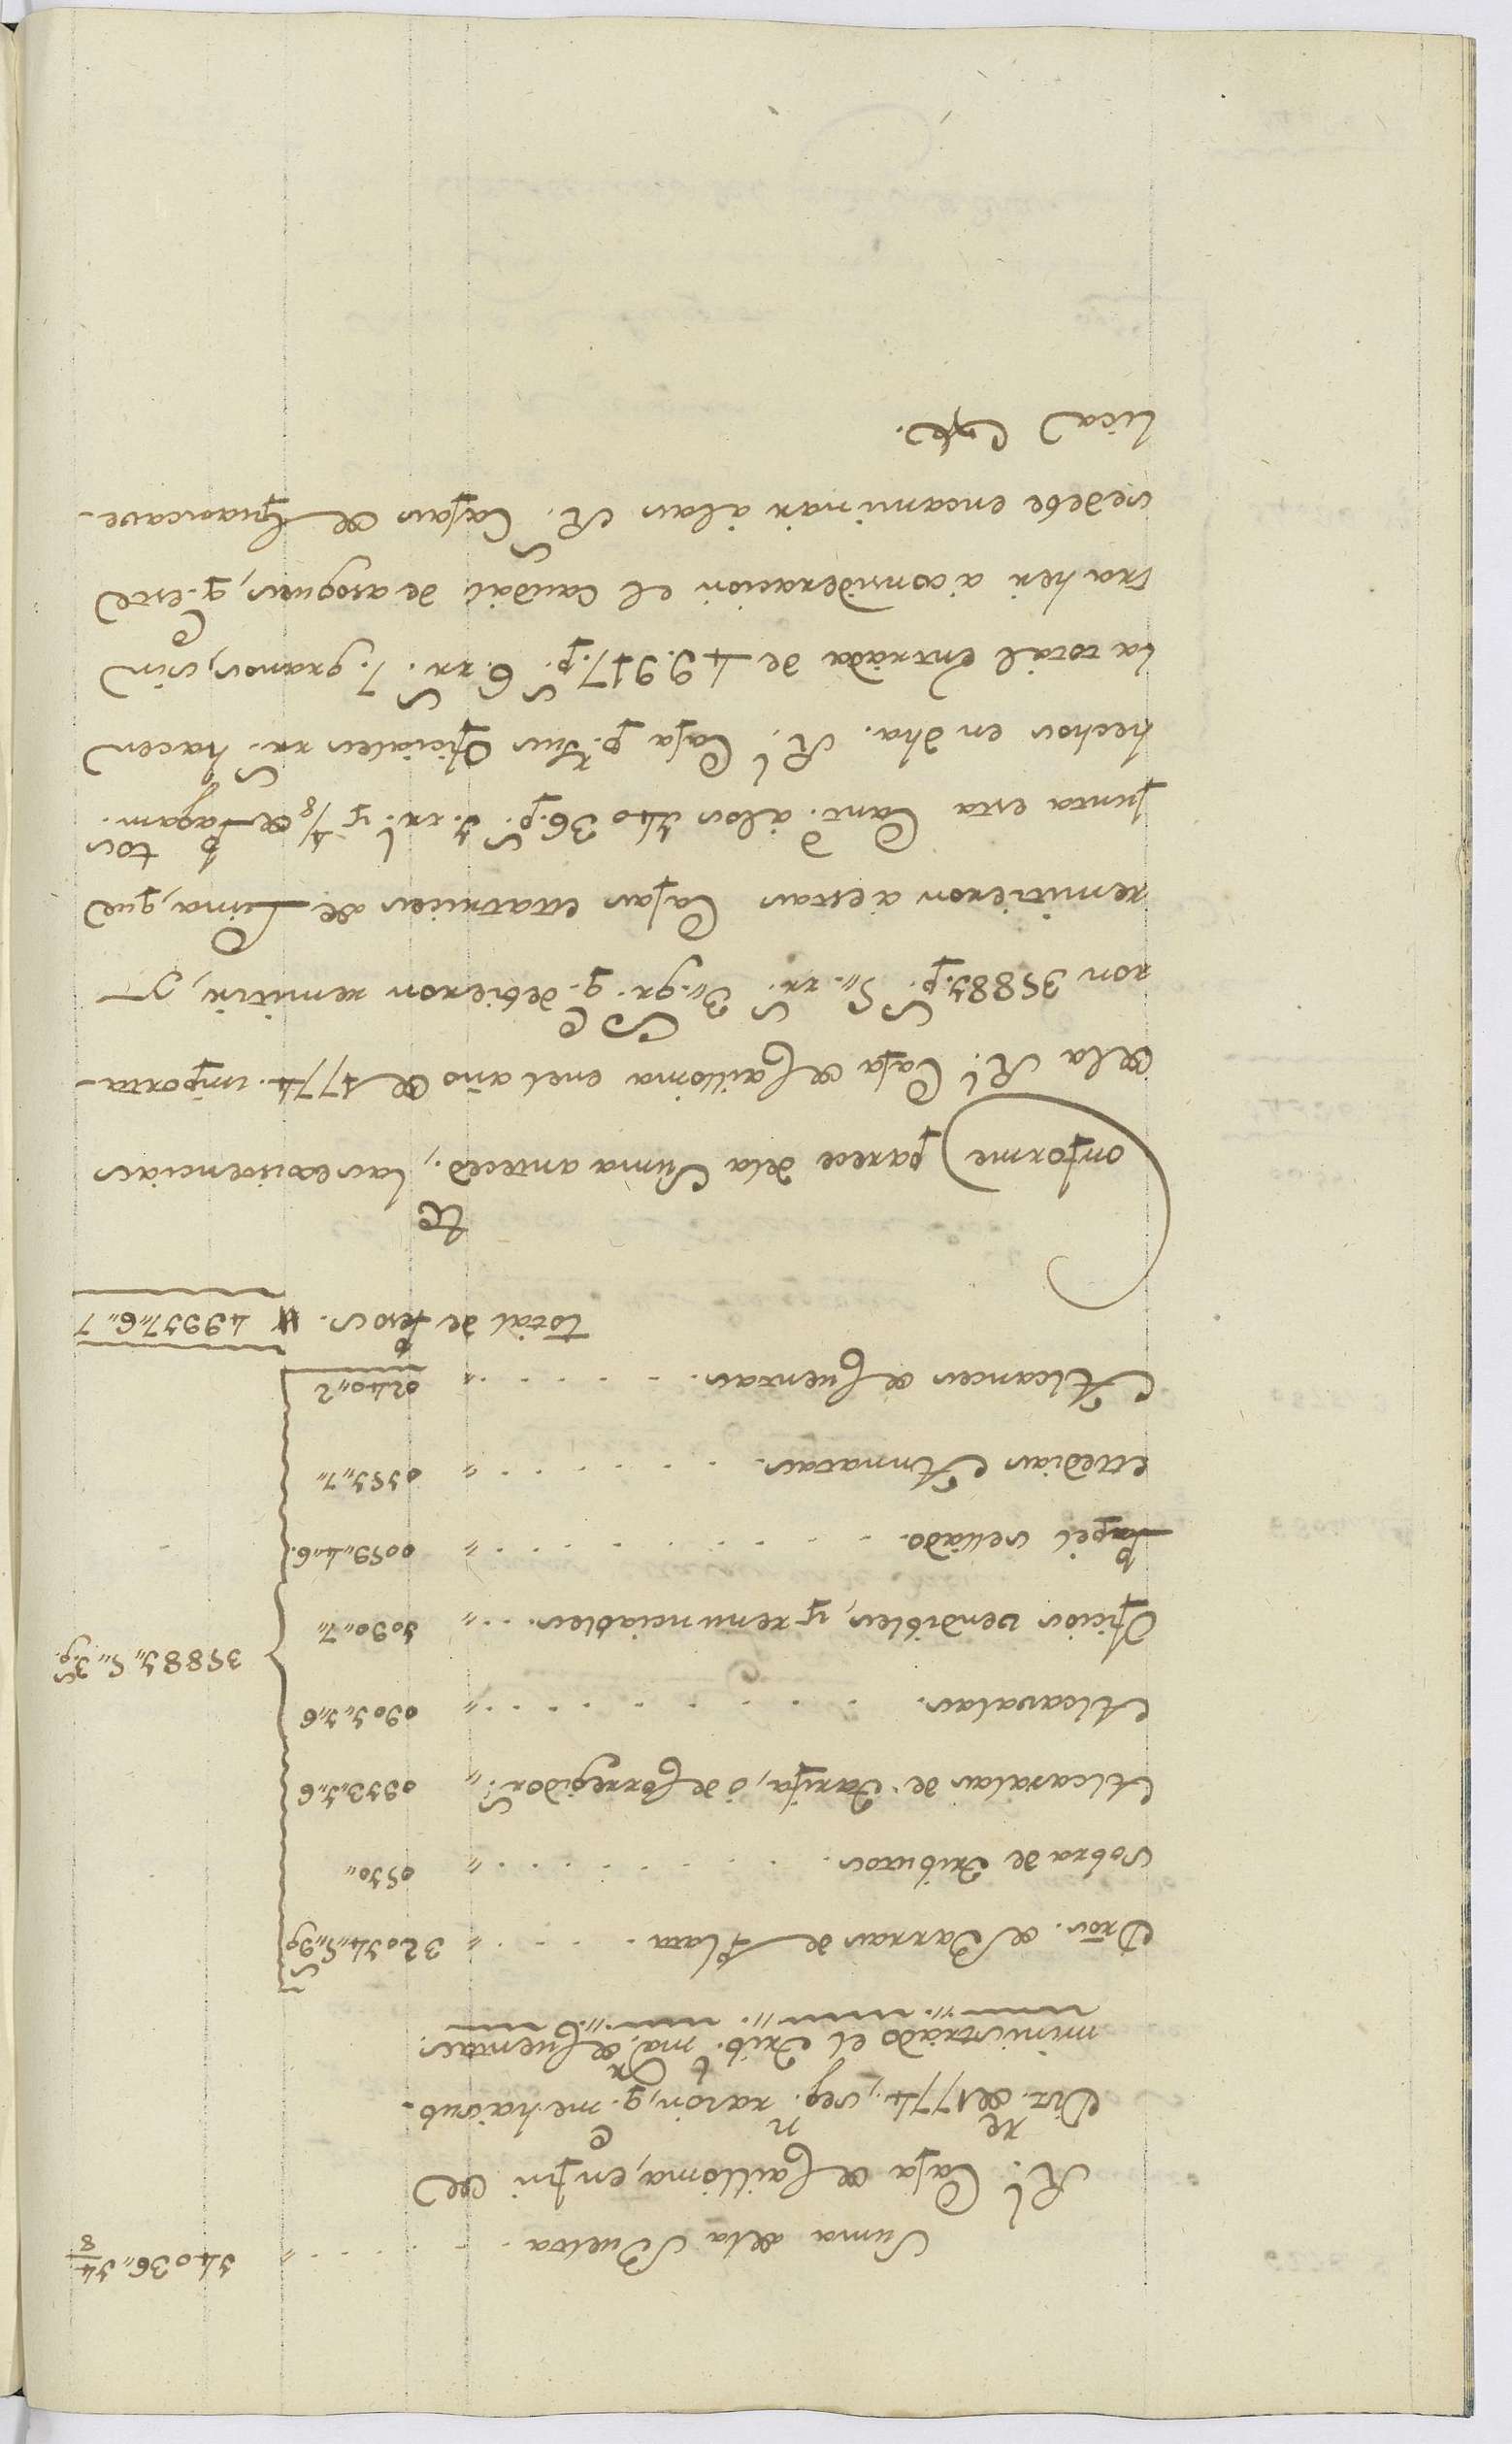 Suma dela Vuelta . . . . . " 14036,,1 4/8
Rl. Caxa de Caillóma, en fin de
Dizre. de 1774, segn. razón, qe. me ha sub-
ministrado el Tribl. mor. de Cuentas.
Dros. de Barras de Plata . . . . " 32014,,5,,9gs
Sobra de Tributos . . . . . . " 0510,,
Alcavalas de Tarifa, ó de Corregidors. " 0913,,1,,6
Alcavalas . . . . . . . " 0901,,1,,6
Oficios vendibles, y renunciables . . . " 1090,,7,, 35881,,5,,3gs.
Papel sellado . . . . . . . " 0059,,4,,6.
Medias Annatas . . . . . . " 0151,,7,,
Alcances de Cuentas . . . . . " 0240,,2
total de pesos. " 49917,,6,,7
Conforme parece dela Suma antecedte., las existencias
de la Rl. Caxa de Caillóma en el año de 1774. importa-
ron 35881.ps. 5,,rrs. 3,,grs. qe. debieron remitir, y
remitieron a estas Caxas Matrices de Lima, que
junta esta Cantd. á los 14036.ps. 1.rrl. y 4/8 de Pagamtos.
hechos en dha. Rl. Caxa pr. sus Oficiales rrs. hacen
la total entrada de 49.917.ps. 6.rrs. 7.granos, sin
traher á consideración el Caudal de azogues, qe. este
se debe encaminar á las Rs. Caxas de Guancave-
lica Caxa.